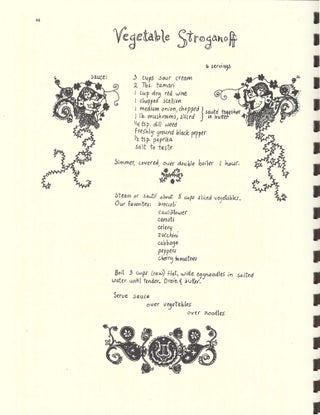 Vegetable Stroganoff
6 servings
sauce:
3 cups sour cream
2 Tbs. tamari
1 cup dry red wine
1 chopped scallion
1 medium onion, chopped
1 lb. mushrooms, sliced
sauté together
in butter
½ tsp. dill weed
Freshly ground black pepper
½ tsp. paprika
salt to taste
Simmer, covered, over double boiler 1 hour.
Steam or sauté about 8 cups sliced vegetables.
Our favorites: broccoli
cauliflower
carrots
celery
zucchini
cabbage
peppers
cherry tomatoes
Boil 3 cups (raw) flat, wide eggnoodles in salted
water until tender. Drain & butter.
Serve sauce
over vegetables
over noodles